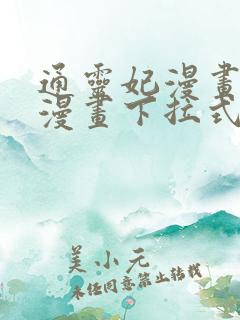 通靈妃漫畫
漫畫下拉式
美小元
未任同意禁止转载